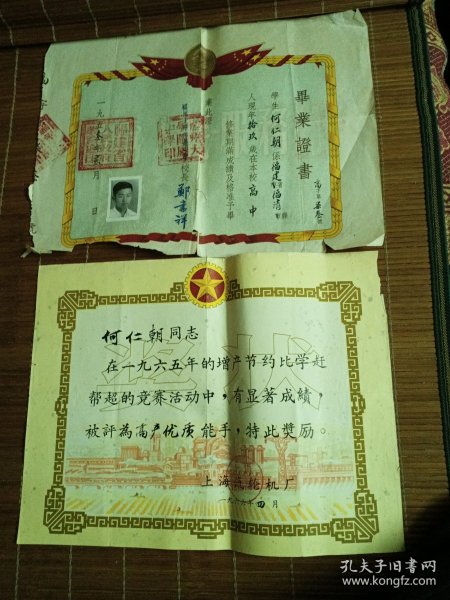 畢業證書
學生何仁朝係福建省福清縣
人現年拾玖歲在本校高中
修業期滿成績及格准予畢
業此證
鄭書祥
何仁朝同志
在一九六五年的增产节约比学赶
帮超的竞赛活动中，有显著成績，
被評為高产优质能手，特此獎励。
上海汽轮机厂
一九六六年四月
孔夫子旧书网
www.kongfz.com